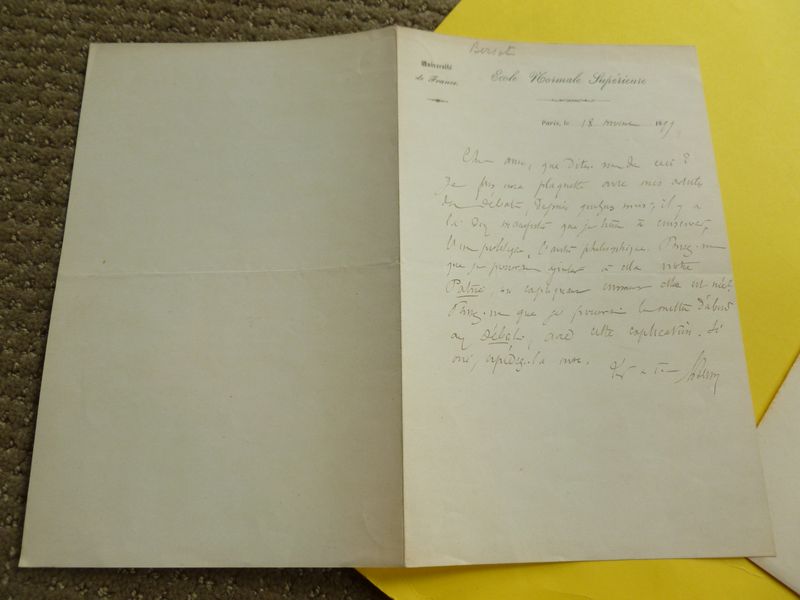 Bersot
Université
de France.
Ecole Normale Supérieure
Paris, le 18 187
Cher ami, que dites de ceci ?
Je fais une plaquette avec mes articles
des Débats, depuis quelques mois ; il y a
là que je tiens à conserver,
l'un politique, l'autre philosophique. Pensez-
que je pourrais ajouter à cela notre
Patrie, en expliquant comment elle est née ?
Pensez- que je pourrais la mettre d'abord
aux Débats, avec cette explication. Si
oui, -la moi.
à